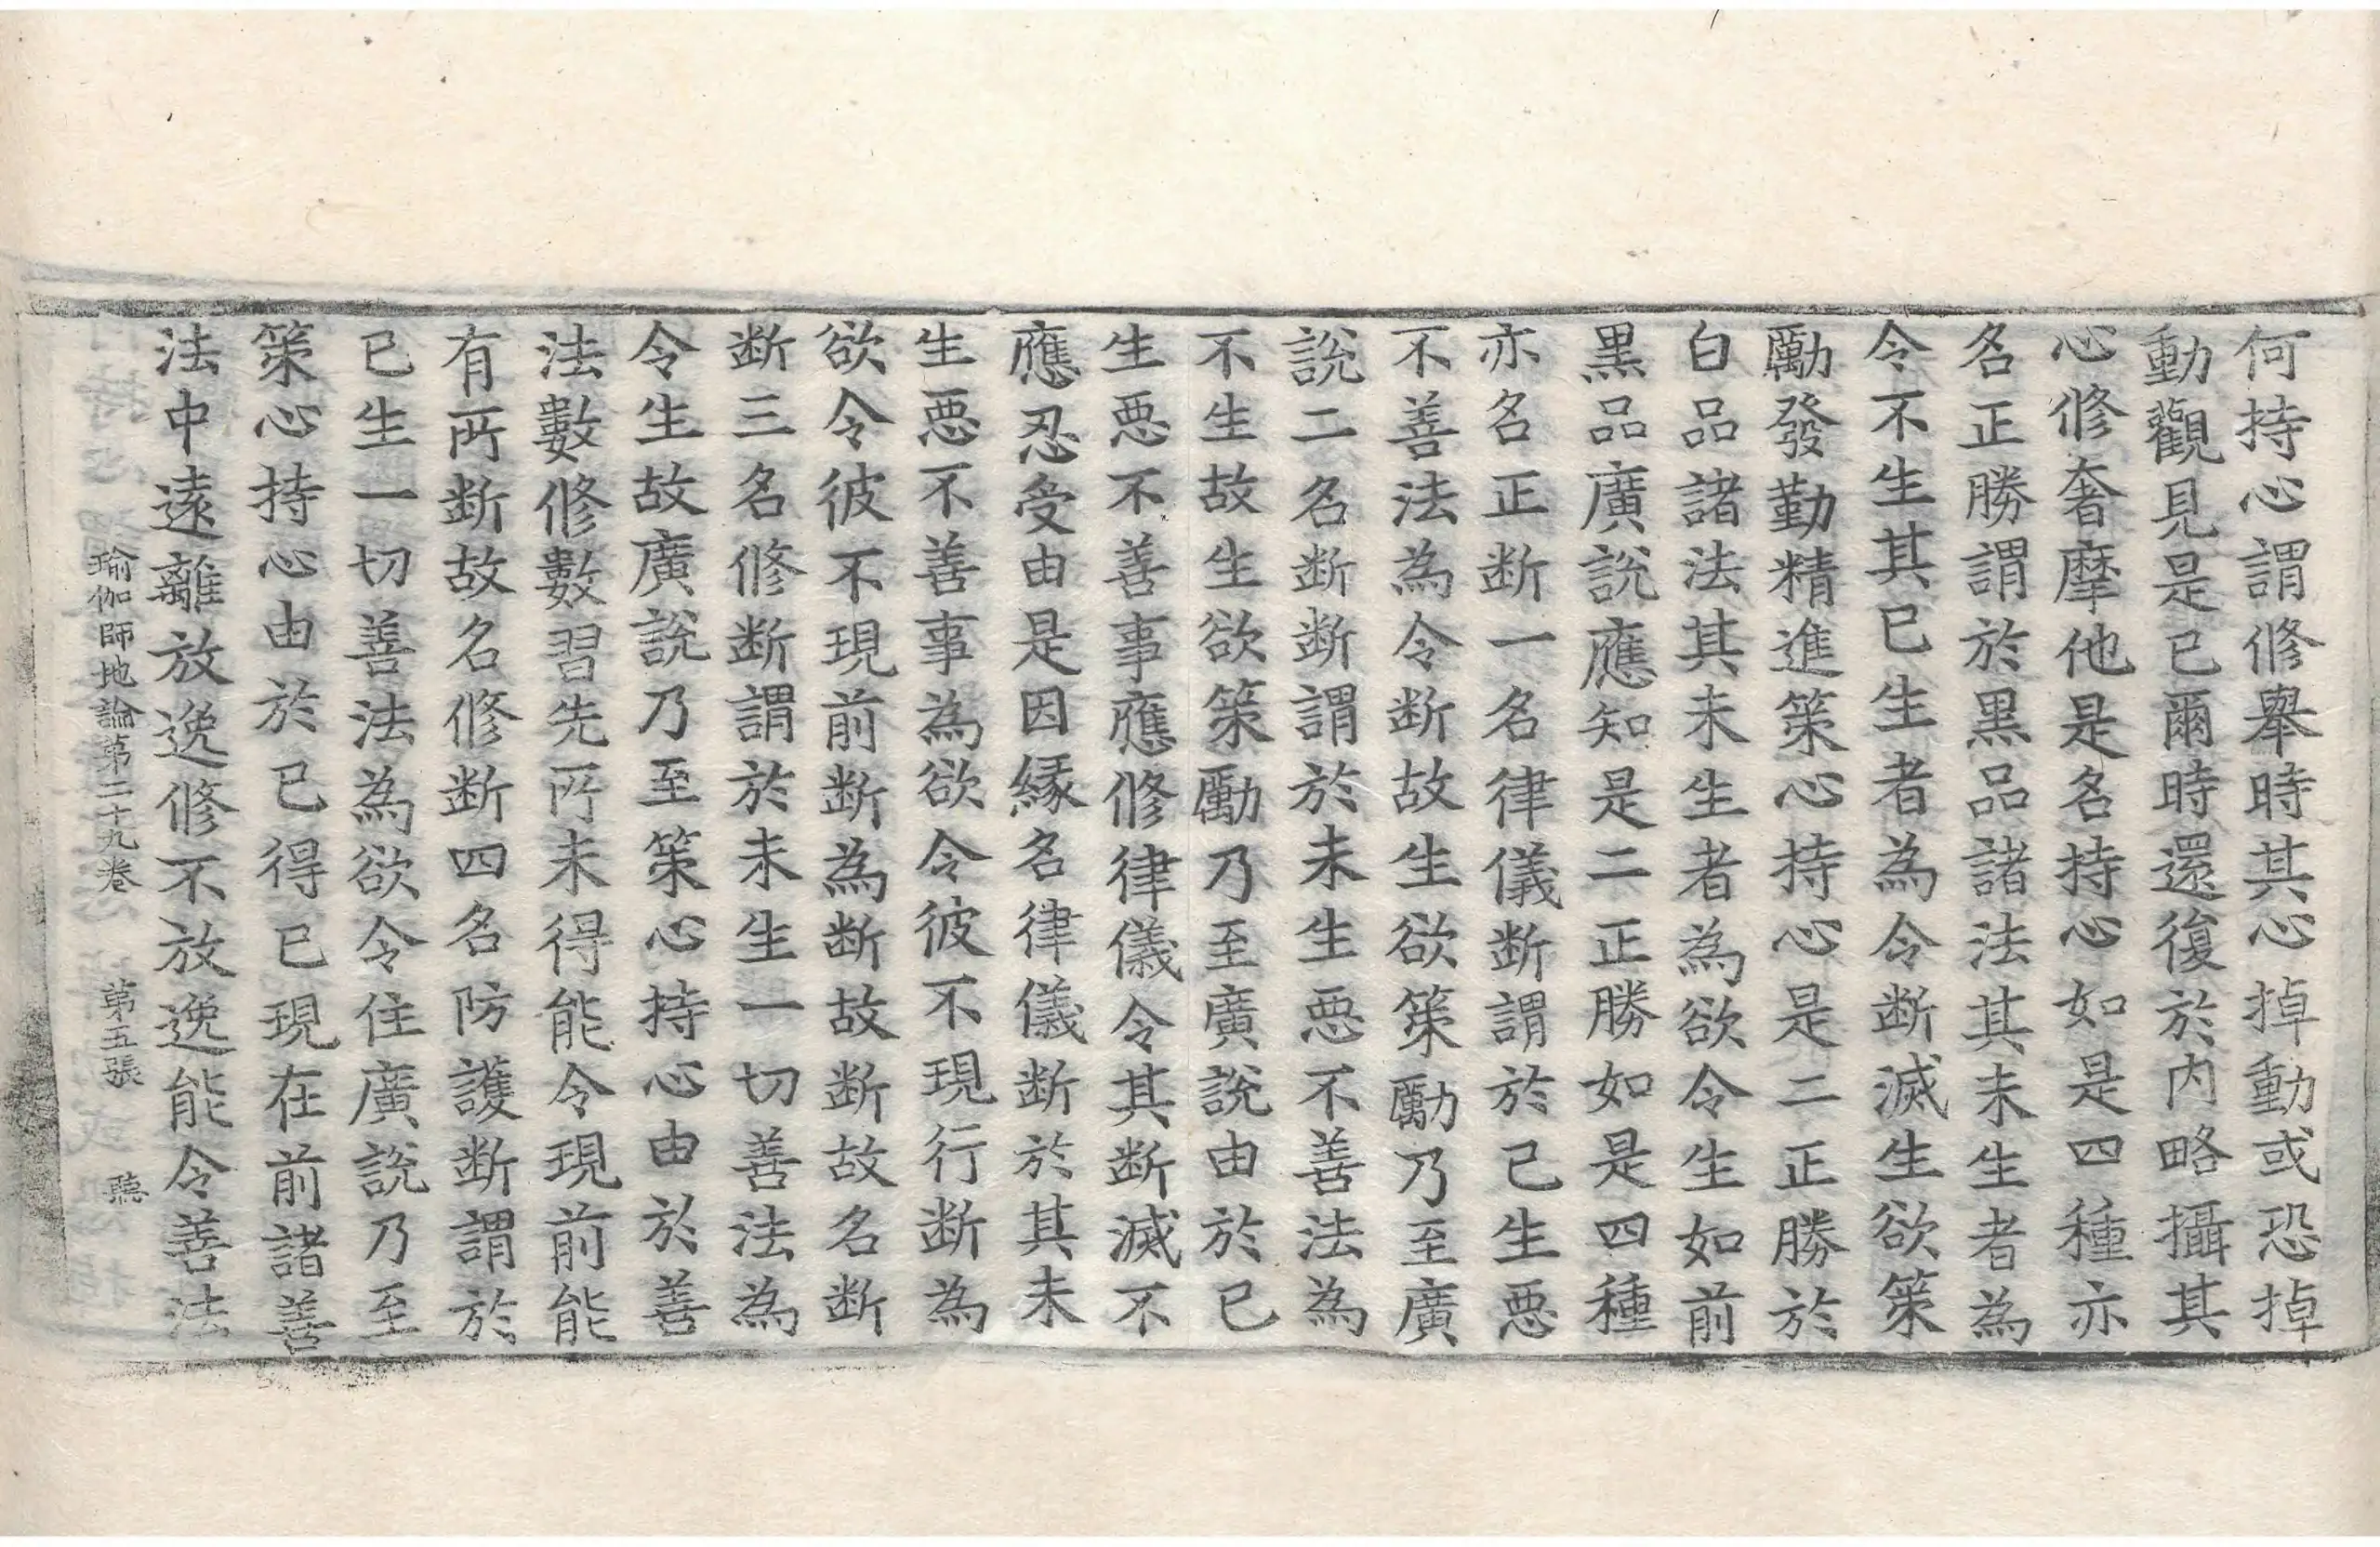 何持心謂修舉時其心掉動或恐掉
動觀見是已爾時還復於内略攝其
心修奢摩他是名持心如是四種亦
名正勝謂於黑品諸法其未生者為
令不生其已生者為令断滅生欲策
勵發勤精進策心持心是二正勝於
白品諸法其未生者為欲令生如前
黑品廣說應知是二正勝如是四種
亦名正断一名律儀断謂於已生惡
不善法為令断故生欲策勵乃至廣
說二名断断謂於未生惡不善法為
不生故生欲策勵乃至廣說由於已
生惡不善事應修律儀令其断滅不
應忍受由是因緣名律儀断於其未
生惡不善事為欲令彼不現行断為
欲令彼不現前断為断故断故名断
断三名修断謂於未生一切善法為
令生故廣說乃至策心持心由於善
法數修數習先所未得能令現前能
有所断故名修断四名防護断謂於
已生一切善法為欲令住廣說乃至
策心持心由於已得已現在前諸善
法中遠離放逸修不放逸能令善法
瑜伽師地論第二十九卷　第五張　聽